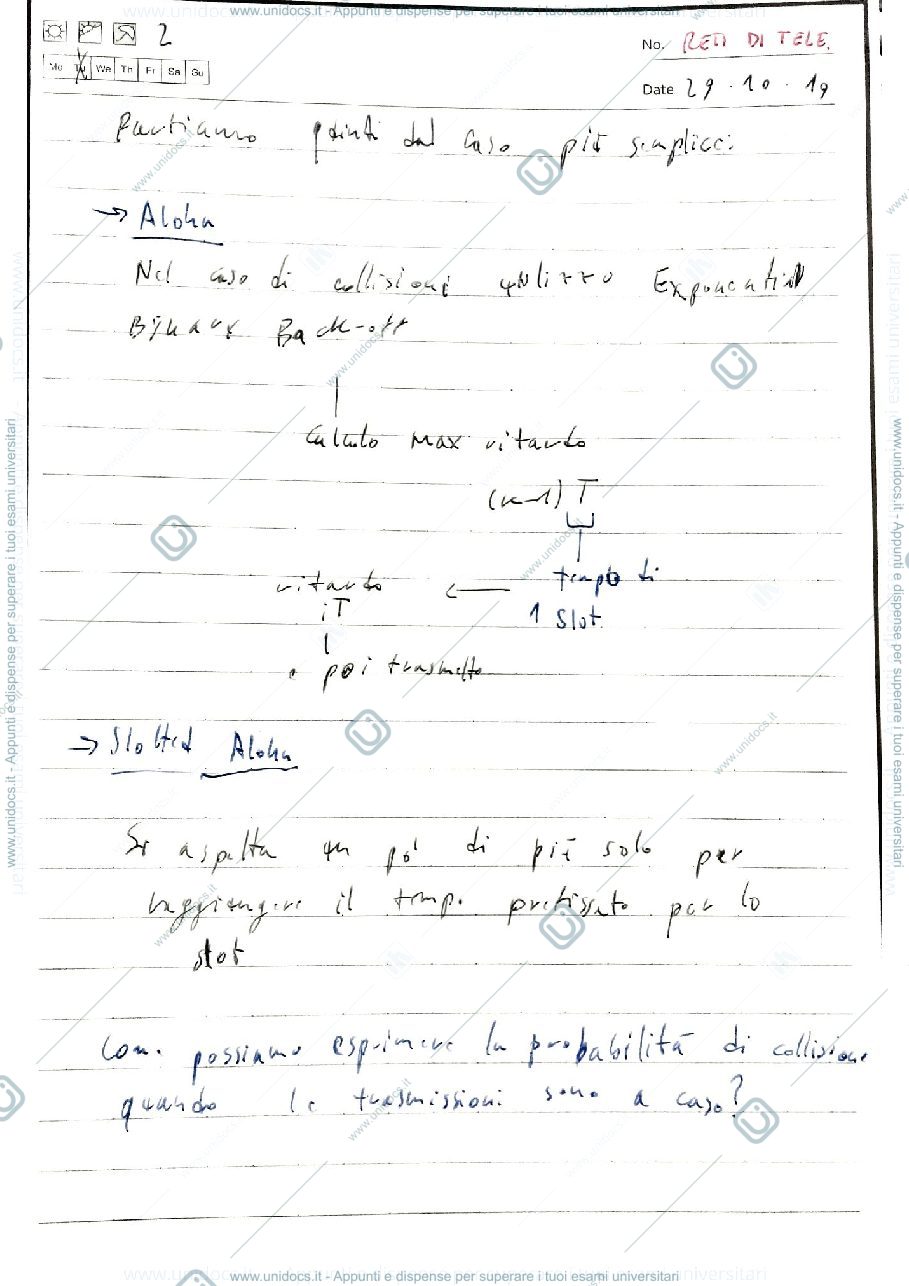 www.unidocs.it - Appunti e dispense per superare i tuoi esami universitari
2
No. RETI DI TELE.
Mo Tu We Th Fr Sa Su
Date 29 . 10 . 19
Partiamo quindi dal caso più semplice:
→ Aloha
Nel caso di collisione utilizzo Exponential
Binary Back-off
Calcolo max ritardo
(k-1) T
tempo di
1 slot
ritardo ←
iT
poi trasmetto
→ Slotted Aloha
Si aspetta un pò di più solo per
raggiungere il tempo prefissato per lo
slot
Come possiamo esprimere la probabilità di collisione
quando le trasmissioni sono a caso?
www.unidocs.it - Appunti e dispense per superare i tuoi esami universitari